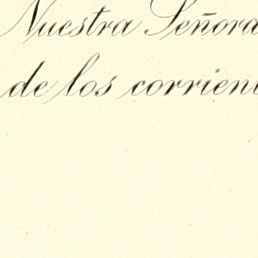 Nuestra Señora
de los corrient